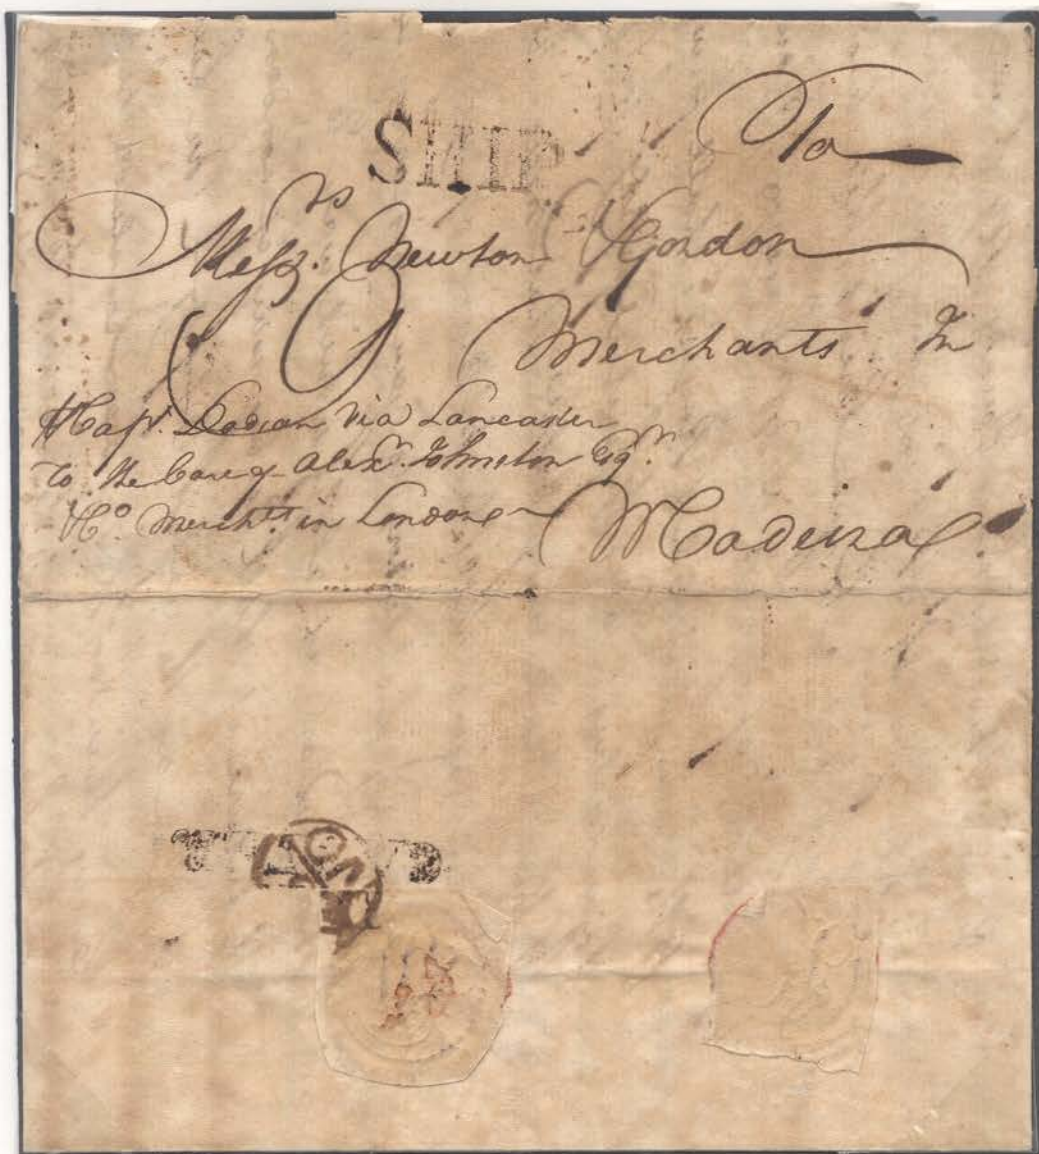 SHIP
To
Mess.rs Newton & Gordon
Merchants In
P Cap.t via Lancaster
To the Care of Alex.r Johnston Esq.r
& C.o Merch.ts in London
Madeira